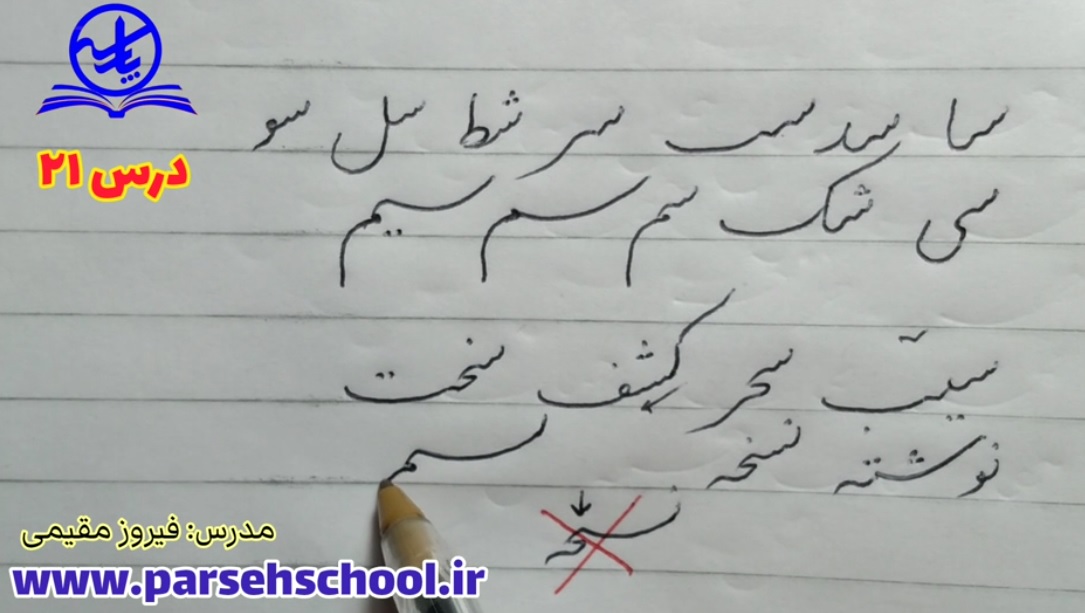 درس ۲۱
سا سد ست سر شط سل سو
سی شک سم سم سیم
سیب سحر کشف سخت
نوشته نسخه لسم
نسخه
مدرس: فیروز مقیمی
www.parsehschool.ir